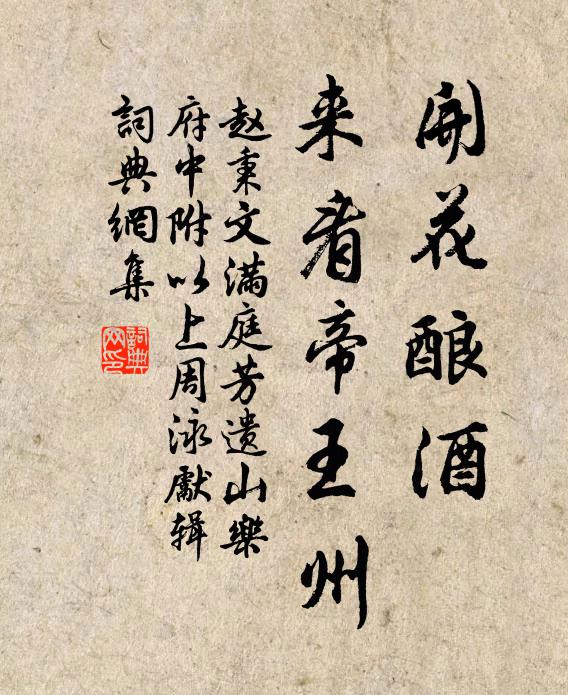 開花酿酒
来看帝王州
赵秉文满庭芳遗山樂
府中附以上周泳獻辑
詞典網集
詞典
网印